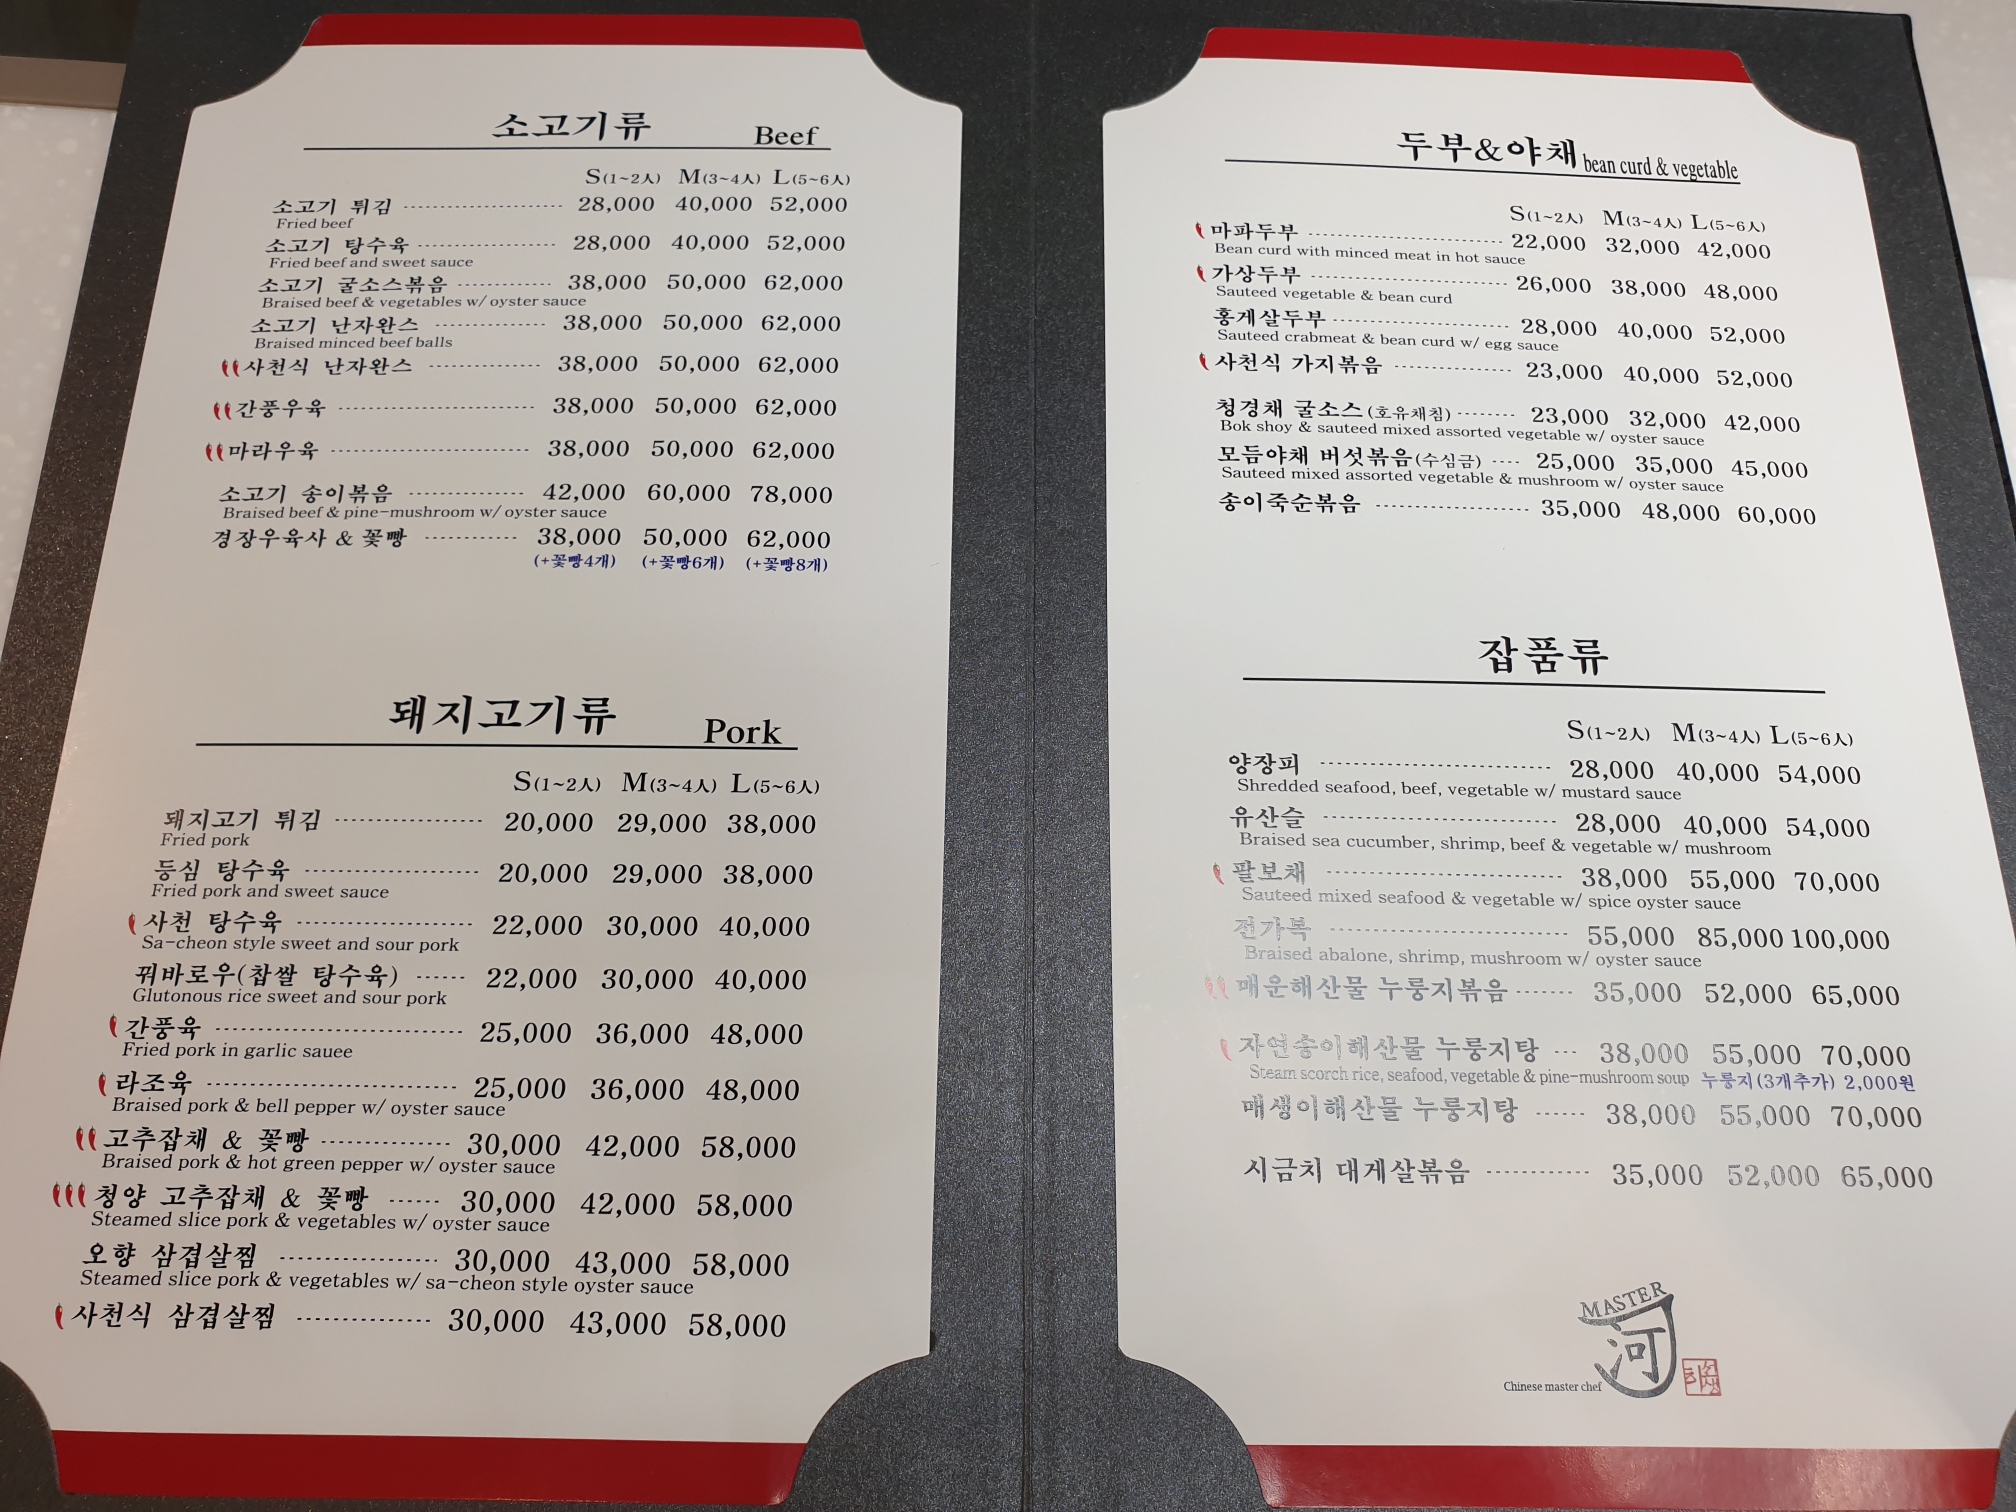 소고기류 Beef
S(1~2人) M(3~4人) L(5~6人)
소고기 튀김 28,000 40,000 52,000
Fried beef
소고기 탕수육 28,000 40,000 52,000
Fried beef and sweet sauce
소고기 굴소스볶음 38,000 50,000 62,000
Braised beef & vegetables w/ oyster sauce
소고기 난자완스 38,000 50,000 62,000
Braised minced beef balls
사천식 난자완스 38,000 50,000 62,000
간풍우육 38,000 50,000 62,000
마라우육 38,000 50,000 62,000
소고기 송이볶음 42,000 60,000 78,000
Braised beef & pine-mushroom w/ oyster sauce
경장우육사 & 꽃빵 38,000 50,000 62,000
(+꽃빵4개) (+꽃빵6개) (+꽃빵8개)
돼지고기류 Pork
S(1~2人) M(3~4人) L(5~6人)
돼지고기 튀김 20,000 29,000 38,000
Fried pork
등심 탕수육 20,000 29,000 38,000
Fried pork and sweet sauce
사천 탕수육 22,000 30,000 40,000
Sa-cheon style sweet and sour pork
꿔바로우(찹쌀 탕수육) 22,000 30,000 40,000
Glutonous rice sweet and sour pork
간풍육 25,000 36,000 48,000
Fried pork in garlic sauee
라조육 25,000 36,000 48,000
Braised pork & bell pepper w/ oyster sauce
고추잡채 & 꽃빵 30,000 42,000 58,000
Braised pork & hot green pepper w/ oyster sauce
청양 고추잡채 & 꽃빵 30,000 42,000 58,000
Steamed slice pork & vegetables w/ oyster sauce
오향 삼겹살찜 30,000 43,000 58,000
Steamed slice pork & vegetables w/ sa-cheon style oyster sauce
사천식 삼겹살찜 30,000 43,000 58,000
두부&야채 bean curd & vegetable
S(1~2人) M(3~4人) L(5~6人)
마파두부 22,000 32,000 42,000
Bean curd with minced meat in hot sauce
가상두부 26,000 38,000 48,000
Sauteed vegetable & bean curd
홍게살두부 28,000 40,000 52,000
Sauteed crabmeat & bean curd w/ egg sauce
사천식 가지볶음 23,000 40,000 52,000
청경채 굴소스(호유채침) 23,000 32,000 42,000
Bok shoy & sauteed mixed assorted vegetable w/ oyster sauce
모듬야채 버섯볶음(수심금) 25,000 35,000 45,000
Sauteed mixed assorted vegetable & mushroom w/ oyster sauce
송이죽순볶음 35,000 48,000 60,000
잡품류
S(1~2人) M(3~4人) L(5~6人)
양장피 28,000 40,000 54,000
Shredded seafood, beef, vegetable w/ mustard sauce
유산슬 28,000 40,000 54,000
Braised sea cucumber, shrimp, beef & vegetable w/ mushroom
팔보채 38,000 55,000 70,000
Sauteed mixed seafood & vegetable w/ spice oyster sauce
전가복 55,000 85,000 100,000
Braised abalone, shrimp, mushroom w/ oyster sauce
매운해산물 누룽지볶음 35,000 52,000 65,000
자연송이해산물 누룽지탕 38,000 55,000 70,000
Steam scorch rice, seafood, vegetable & pine-mushroom soup 누룽지(3개추가) 2,000원
매생이해산물 누룽지탕 38,000 55,000 70,000
시금치 대게살볶음 35,000 52,000 65,000
MASTER
河
Chinese master chef